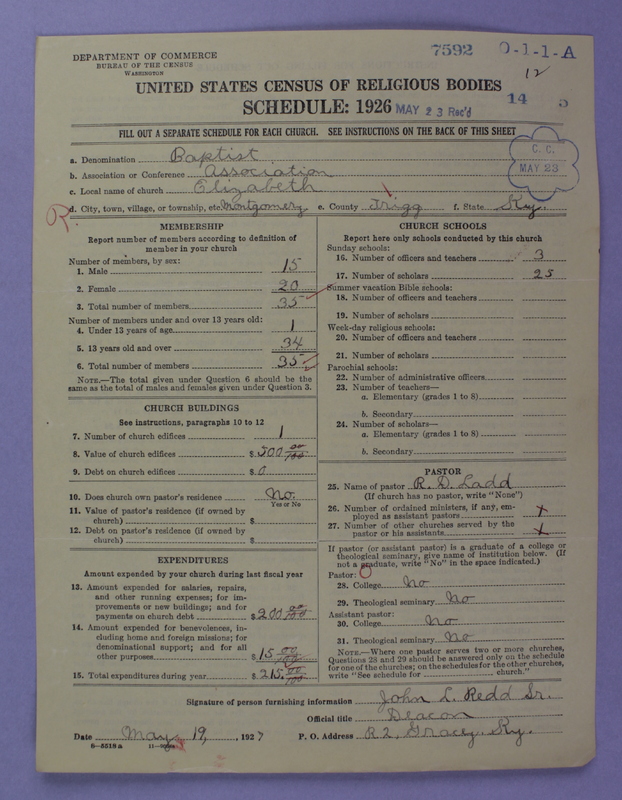 7592 0-1-1-A
DEPARTMENT OF COMMERCE
BUREAU OF THE CENSUS
WASHINGTON
12
UNITED STATES CENSUS OF RELIGIOUS BODIES
SCHEDULE: 1926 MAY 23 Rec'd 14 5
FILL OUT A SEPARATE SCHEDULE FOR EACH CHURCH. SEE INSTRUCTIONS ON THE BACK OF THIS SHEET
C. C.
MAY 23
a. Denomination Baptist
b. Association or Conference Association
c. Local name of church Elizabeth
d. City, town, village, or township, etc. Montgomery e. County Trigg f. State Ky.
R
MEMBERSHIP
Report number of members according to definition of
member in your church
Number of members, by sex:
1. Male 15
2. Female 20
3. Total number of members 35
Number of members under and over 13 years old:
4. Under 13 years of age 1
5. 13 years old and over 34
6. Total number of members 35
NOTE.—The total given under Question 6 should be the
same as the total of males and females given under Question 3.
CHURCH BUILDINGS
See instructions, paragraphs 10 to 12
7. Number of church edifices 1
8. Value of church edifices $ 500 00/100
9. Debt on church edifices $ 0
10. Does church own pastor's residence No.
Yes or No
11. Value of pastor's residence (if owned by
church) $
12. Debt on pastor's residence (if owned by
church) $
EXPENDITURES
Amount expended by your church during last fiscal year
13. Amount expended for salaries, repairs,
and other running expenses; for im-
provements or new buildings; and for
payments on church debt $ 200 00/100
14. Amount expended for benevolences, in-
cluding home and foreign missions; for
denominational support; and for all
other purposes $ 15 00/100
15. Total expenditures during year $ 215. 00/100
CHURCH SCHOOLS
Report here only schools conducted by this church
Sunday schools:
16. Number of officers and teachers 3
17. Number of scholars 25
Summer vacation Bible schools:
18. Number of officers and teachers
19. Number of scholars
Week-day religious schools:
20. Number of officers and teachers
21. Number of scholars
Parochial schools:
22. Number of administrative officers
23. Number of teachers—
a. Elementary (grades 1 to 8)
b. Secondary
24. Number of scholars—
a. Elementary (grades 1 to 8)
b. Secondary
PASTOR
25. Name of pastor R. D. Ladd
(If church has no pastor, write "None")
26. Number of ordained ministers, if any, em-
ployed as assistant pastors x
27. Number of other churches served by the
pastor or his assistants x
If pastor (or assistant pastor) is a graduate of a college or
theological seminary, give name of institution below. (If
not a graduate, write "No" in the space indicated.)
Pastor: O
28. College No
29. Theological seminary No
Assistant pastor:
30. College No
31. Theological seminary No
NOTE.—Where one pastor serves two or more churches,
Questions 28 and 29 should be answered only on the schedule
for one of the churches; on the schedules for the other churches,
write "See schedule for church."
Signature of person furnishing information John L. Redd Sr.
Official title Deacon
Date May 19, 1927 P. O. Address R 2, Gracey. Ky.
8-5518 a